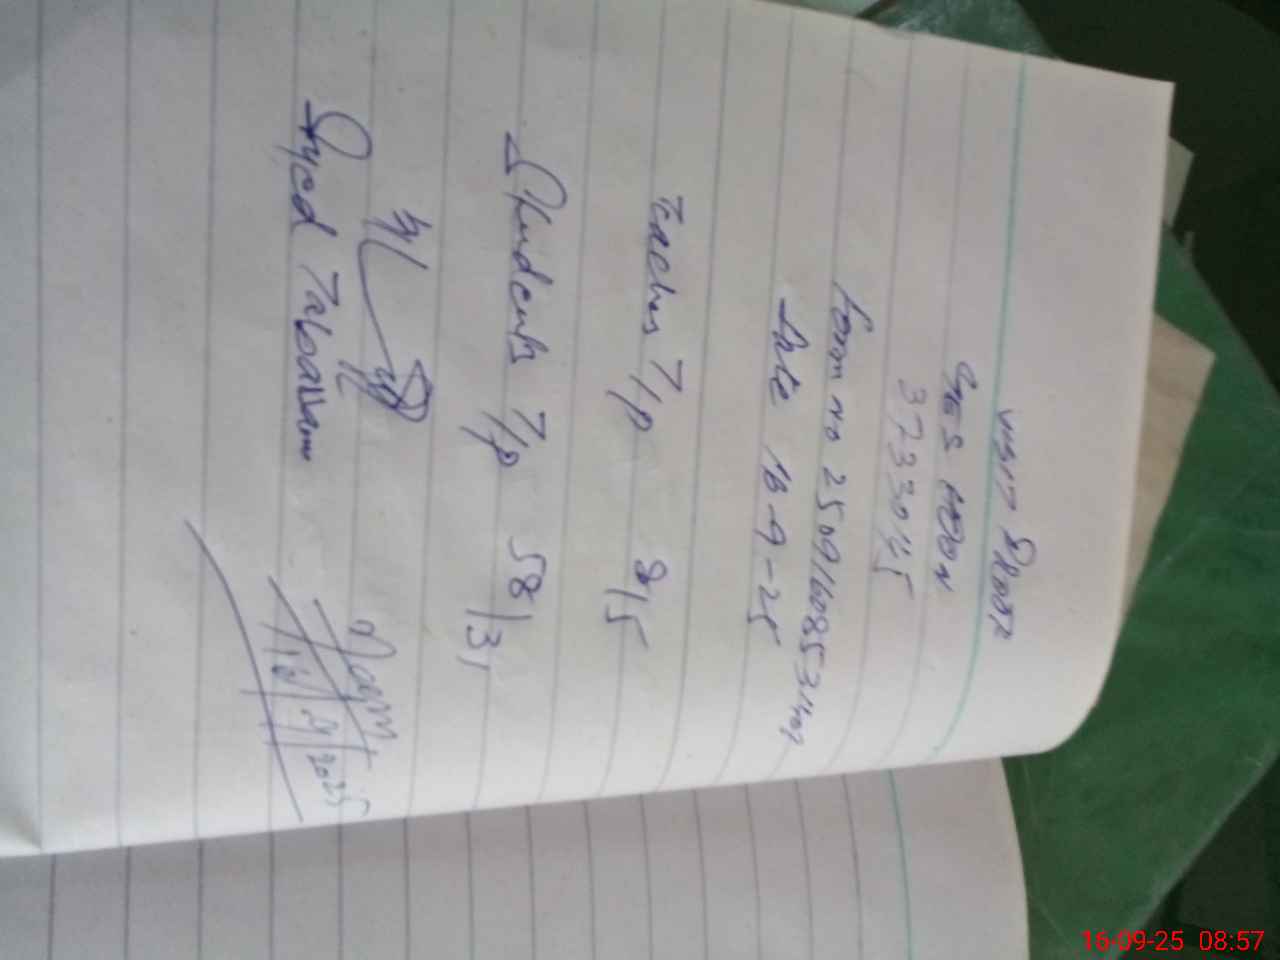 Visit Proof
GGES ADDN
37330145
Form no 25091608531407
Date 16-9-25
Teachers T/P 8/5
Students T/P 58/31
Syed Tabassam
16/9/2025
16-09-25 08:57